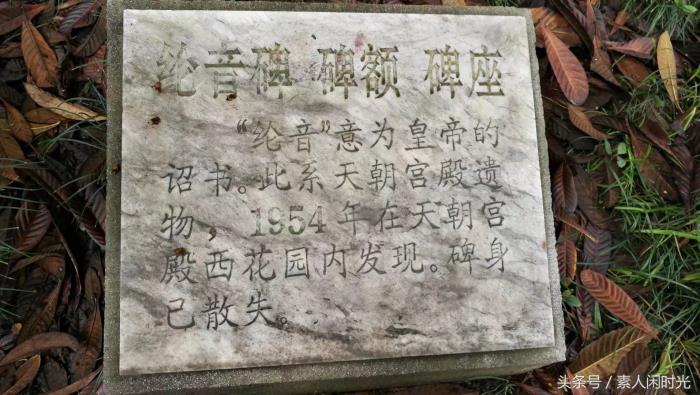 纶音碑 碑额 碑座
“纶音”意为皇帝的
诏书。此系天朝宫殿遗
物，1954年在天朝宫
殿西花园内发现。碑身
已散失。
头条号 / 素人闲时光